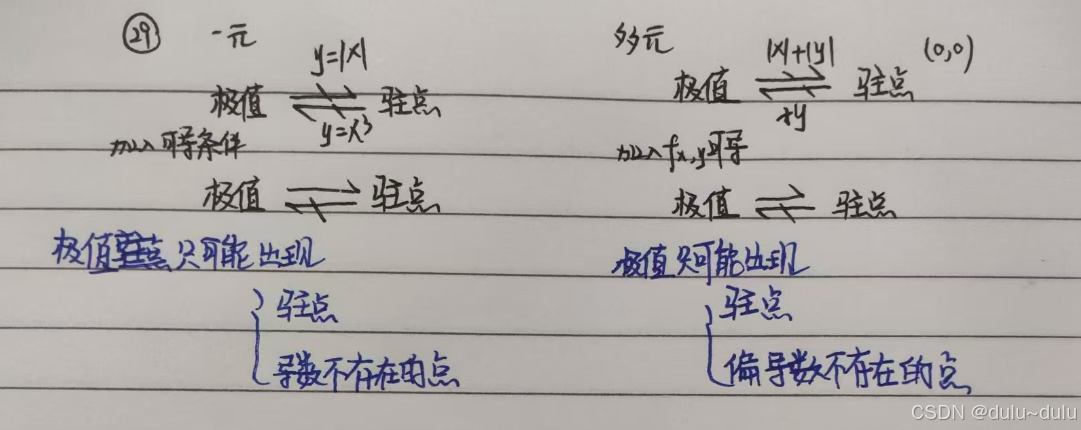 ㉙ 一元
y=|x|
极值 ⇌ 驻点
y=x³
加入可导条件
极值 ⇌ 驻点
极值 只可能出现
驻点
导数不存在的点
多元
|x|+|y| (0,0)
极值 ⇌ 驻点
xy
加入fx,y可导
极值 ⇌ 驻点
极值只可能出现
驻点
偏导数不存在的点
CSDN @dulu~dulu